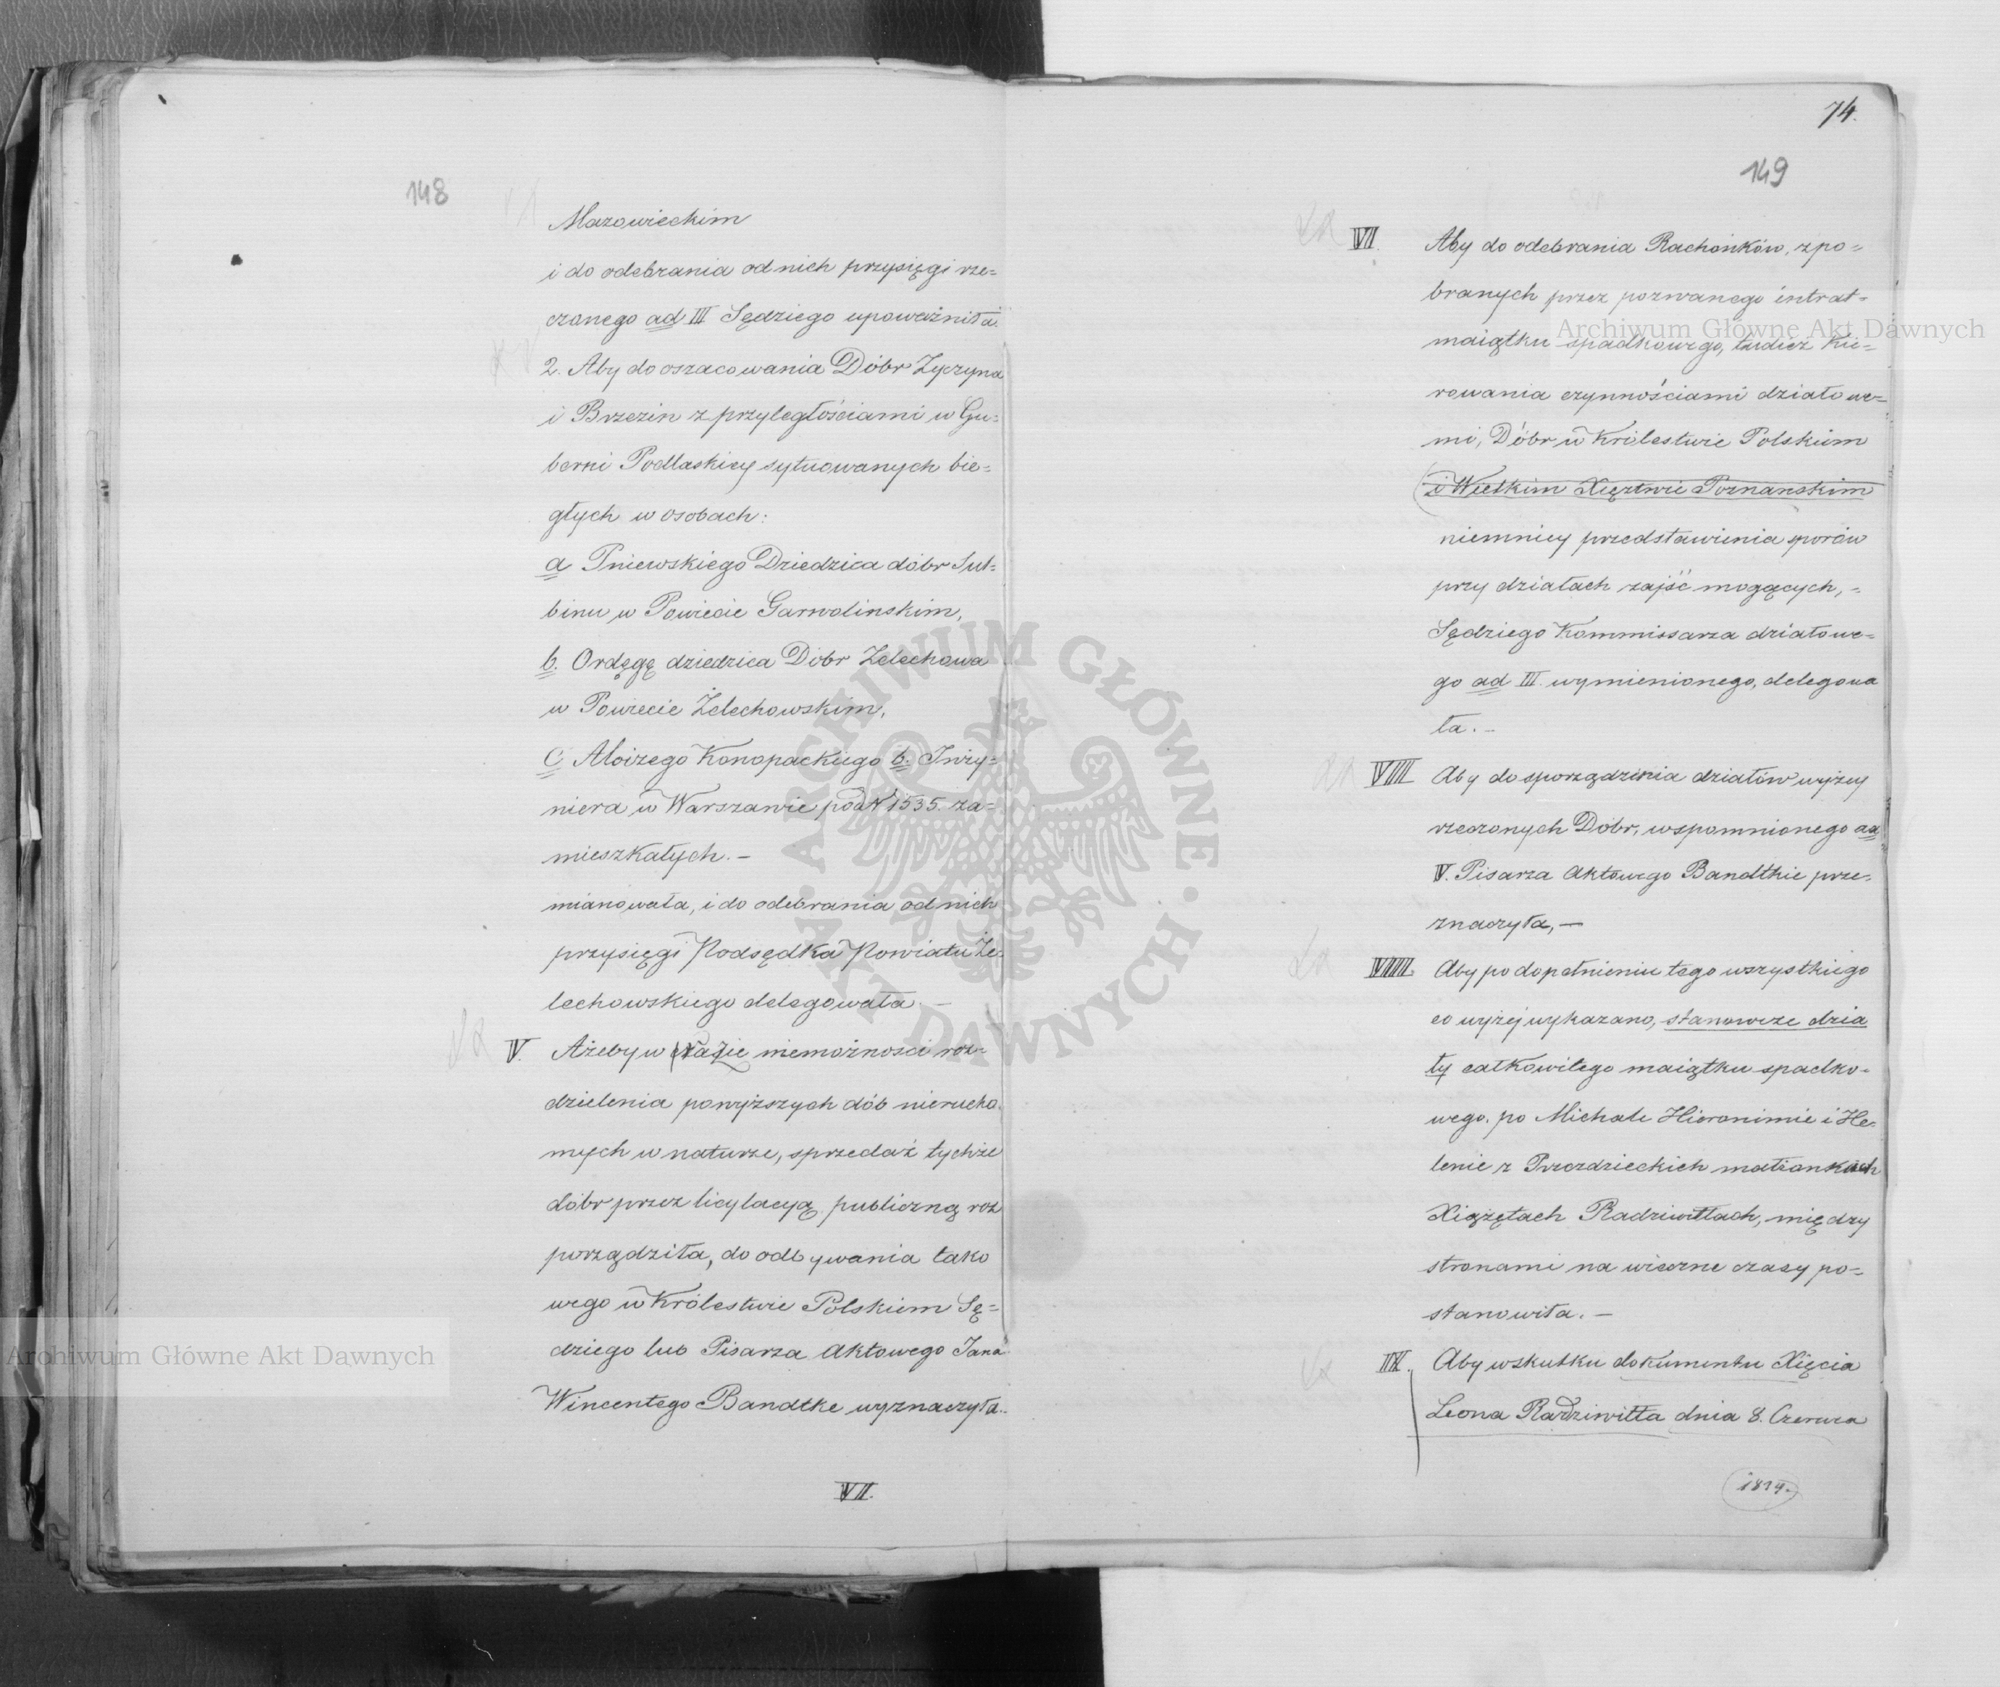 148
Mazowieckim
i do odebrania od nich przysięgi rze=
czonego ad III Sędziego upoważniła.
2. Aby do oszacowania Dóbr Życzyna
i Brzezin z przyległościami w Gu=
berni Podlaskiey sytuowanych bie=
głych w osobach:
a Pniewskiego Dziedzica dóbr Sul=
binu w Powiecie Garwolinskim,
b. Ordęgę dziedzica Dóbr Żelechowa
w Powiecie Żelechowskim,
c Aloizego Konopackiego b. Inży=
niera w Warszawie pod N 1535. za=
mieszkałych. —
mianowała, i do odebrania od nich
przysięgi Podsędka Powiatu Że=
lechowskiego delegowała —
V. Ażeby w razie niemożności roz=
dzielenia powyższych dób nierucho.
mych w naturze, sprzedaż tychże
dóbr przez licytacyą publiczną roz
porządziła, do odbywania tako
wego w Królestwie Polskiem Sę=
dziego lub Pisarza Aktowego Jana
Wincentego Bandtke wyznaczyła.
VII.
74.
149
VII. Aby do odebrania Rachónków, z po=
branych przez pozwanego intrat=
maiątku spadkowego, tudzież kie=
rowania czynnościami działowe=
mi, Dóbr w Królestwie Polskiem
i Wielkim Xięztwie Poznanskim
niemniey przedstawienia sporów
przy działach zajść mogących, =
Sędziego Kommissarza działowe=
go ad III. wymienionego, delegowa
ła. —
VIII Aby do sporządzenia działów wyżey
rzeczonych Dóbr, wspomnionego ad
V. Pisarza Aktowego Bandtkie prze=
znaczyła, —
VIIII. Aby po dopełnieniu tego wszystkiego
co wyżej wykazano, stanowcze dzia
ły całkowitego maiątku spadko=
wego. po Michale Hieronimie i He=
lenie z Przezdzieckich małżonkach
Xiążętach Radziwiłłach, między
stronami na wieczne czasy po=
stanowiła. —
IX. Aby wskutku dokumentu Xięcia
Leona Radziwiłła dnia 8. Czerwca
Archiwum Główne Akt Dawnych
Archiwum Główne Akt Dawnych
ARCHIWUM GŁÓWNE · AKT DAWNYCH ·